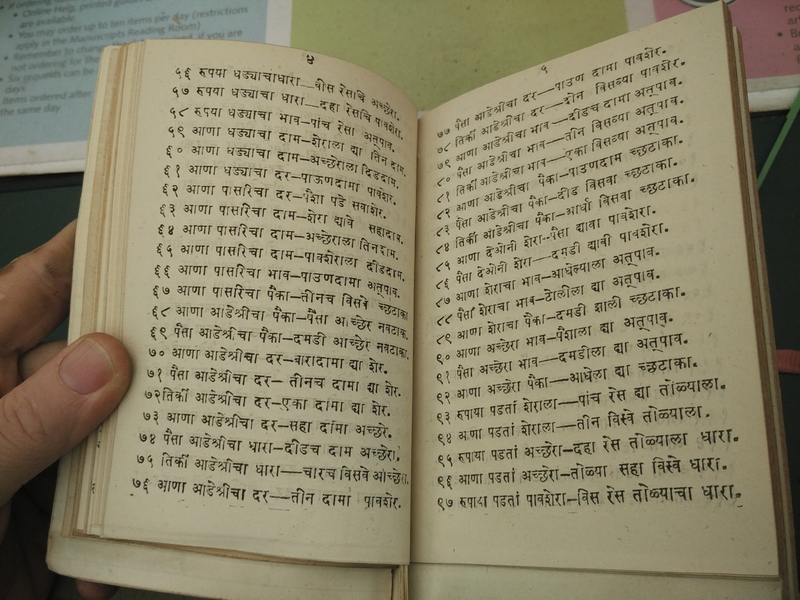 If ordering
Online Help, printed
are available
You may order up to ten items per day (restrictions
apply in the Manuscripts Reading Room)
Remember to
not ordering
if you are
days
Items ordered after
the same day
४
५६ रुपया धड्याचाधारा—वीस रेसाचि अच्छेरा.
५७ रुपया धड्याचा धारा—दहा रेसाचि पावशेर.
५८ रुपया धड्याचा भाव—पांच रेसा अत्पाव.
५९ आणा धड्याचा दाम—शेराला द्या तिन दाम.
६० आणा धड्याचा दाम—अच्छेराला दिडदाम.
६१ आणा धड्याचा दर—पाऊणदामा पावशेर.
६२ आणा पासरिचा दर—पैशा पडे सवाशेर.
६३ आणा पासरिचा दाम—शेरा द्यावे सहादाम.
६४ आणा पासरिचा दाम—अच्छेराला तिनदाम.
६५ आणा पासरिचा दाम—पावशेराला दीडदाम.
६६ आणा पासरिचा भाव—पाउणदामा अत्पाव.
६७ आणा पासरिचा पैका—तीनच विसवे च्छटाका
६८ आणा आडेश्रीचा पैका—पैसा अच्छेर नवटाका.
६९ पैसा आडेश्रीचा पैका—दमडी अच्छेर नवटाका.
७० आणा आडेश्रीचा दर—बारादामा द्या शेर.
७१ पैसा आडेश्रीचा दर—तीनच दामा द्या शेर.
७२ तिर्की आडेश्रीचा दर—एका दामा द्या शेर.
७३ आणा आडेश्रीचा दर—सहा दामा अच्छेर.
७४ पैसा आडेश्रीचा धारा—दीडच दाम अच्छेरा.
७५ तिर्की आडेश्रीचा धारा—चारच विसवे अच्छेरा.
७६ आणा आडेश्रीचा दर—तीन दामा पावशेर.
५
७७ पैसा आडेश्रीचा दर—पाउण दामा पावशेर.
७८ तिर्की आडेश्रीचा दर—दोन विसव्या पावशेर.
७९ आणा आडेश्रीचा भाव—दीडच दामा अत्पाव.
८० पैसा आडेश्रीचा भाव—तीन विसव्या अत्पाव.
८१ तिर्की आडेश्रीचा भाव—एका विसव्या अत्पाव.
८२ आणा आडेश्रीचा पैका—पाउणदाम च्छटाका.
८३ पैसा आडेश्रीचा पैका—दीड विसवा च्छटाका.
८४ तिर्की आडेश्रीचा पैका—आर्धा विसवा च्छटाका.
८५ आणा देओनी शेरा—पैसा द्यावा पावशेरा.
८६ पैसा देओनी शेरा—दमडी द्यावी पावशेरा.
८७ आणा शेराचा भाव—आधेल्याला द्या अत्पाव.
८८ पैसा शेराचा भाव—टोलीला द्या अत्पाव.
८९ आणा शेराचा पैका—दमडी झाली च्छटाका.
९० आणा अच्छेरा भाव—पैशाला द्या अत्पाव.
९१ पैसा अच्छेरा भाव—दमडीला द्या अत्पाव.
९२ आणा अच्छेरा पैका—आधेला द्या च्छटाका.
९३ रुपाया पडतां शेराला—पांच रेस द्या तोळ्याला.
९४ आणा पडतां शेराला—तीन विस्वे तोळ्याला.
९५ रुपाया पडतां अच्छेरा—दहा रेस तोळ्याला धारा.
९६ आणा पडतां अच्छेरा—तोळ्या सहा विस्वे धारा.
९७ रुपाया पडतां पावशेरा—विस रेस तोळ्याचा धारा.